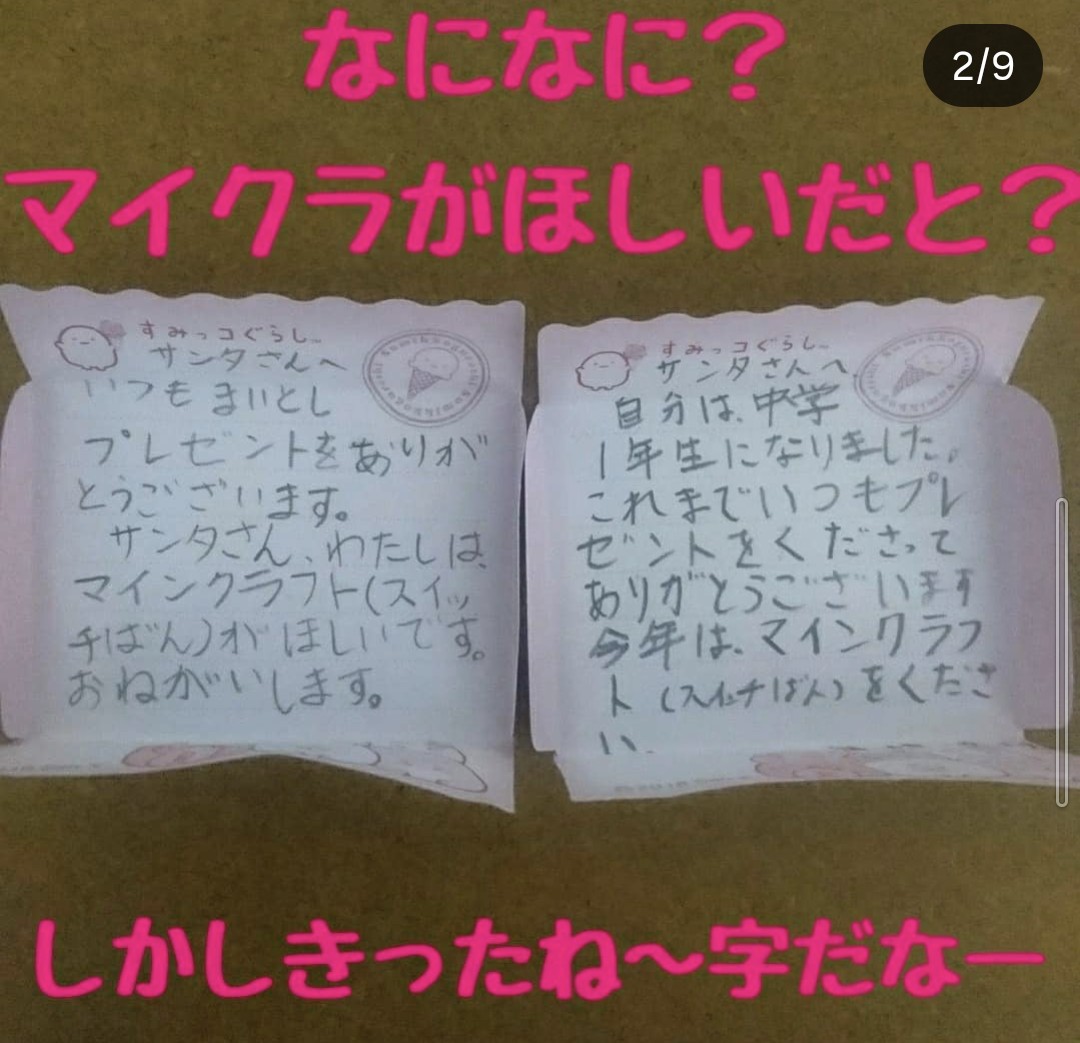 なになに？
2/9
マイクラがほしいだと？
すみっコぐらし
サンタさんへ
いつもまいとし
プレゼントをありが
とうございます。
サンタさん、わたしは、
マインクラフト(スイッ
チばん)がほしいです。
おねがいします。
すみっコぐらし
サンタさんへ
自分は、中学
1年生になりました。
これまでいつもプレ
ゼントをくださって
ありがとうございます
今年は、マインクラフ
ト(スイッチばん)をくださ
い。
しかしきったね〜字だなー